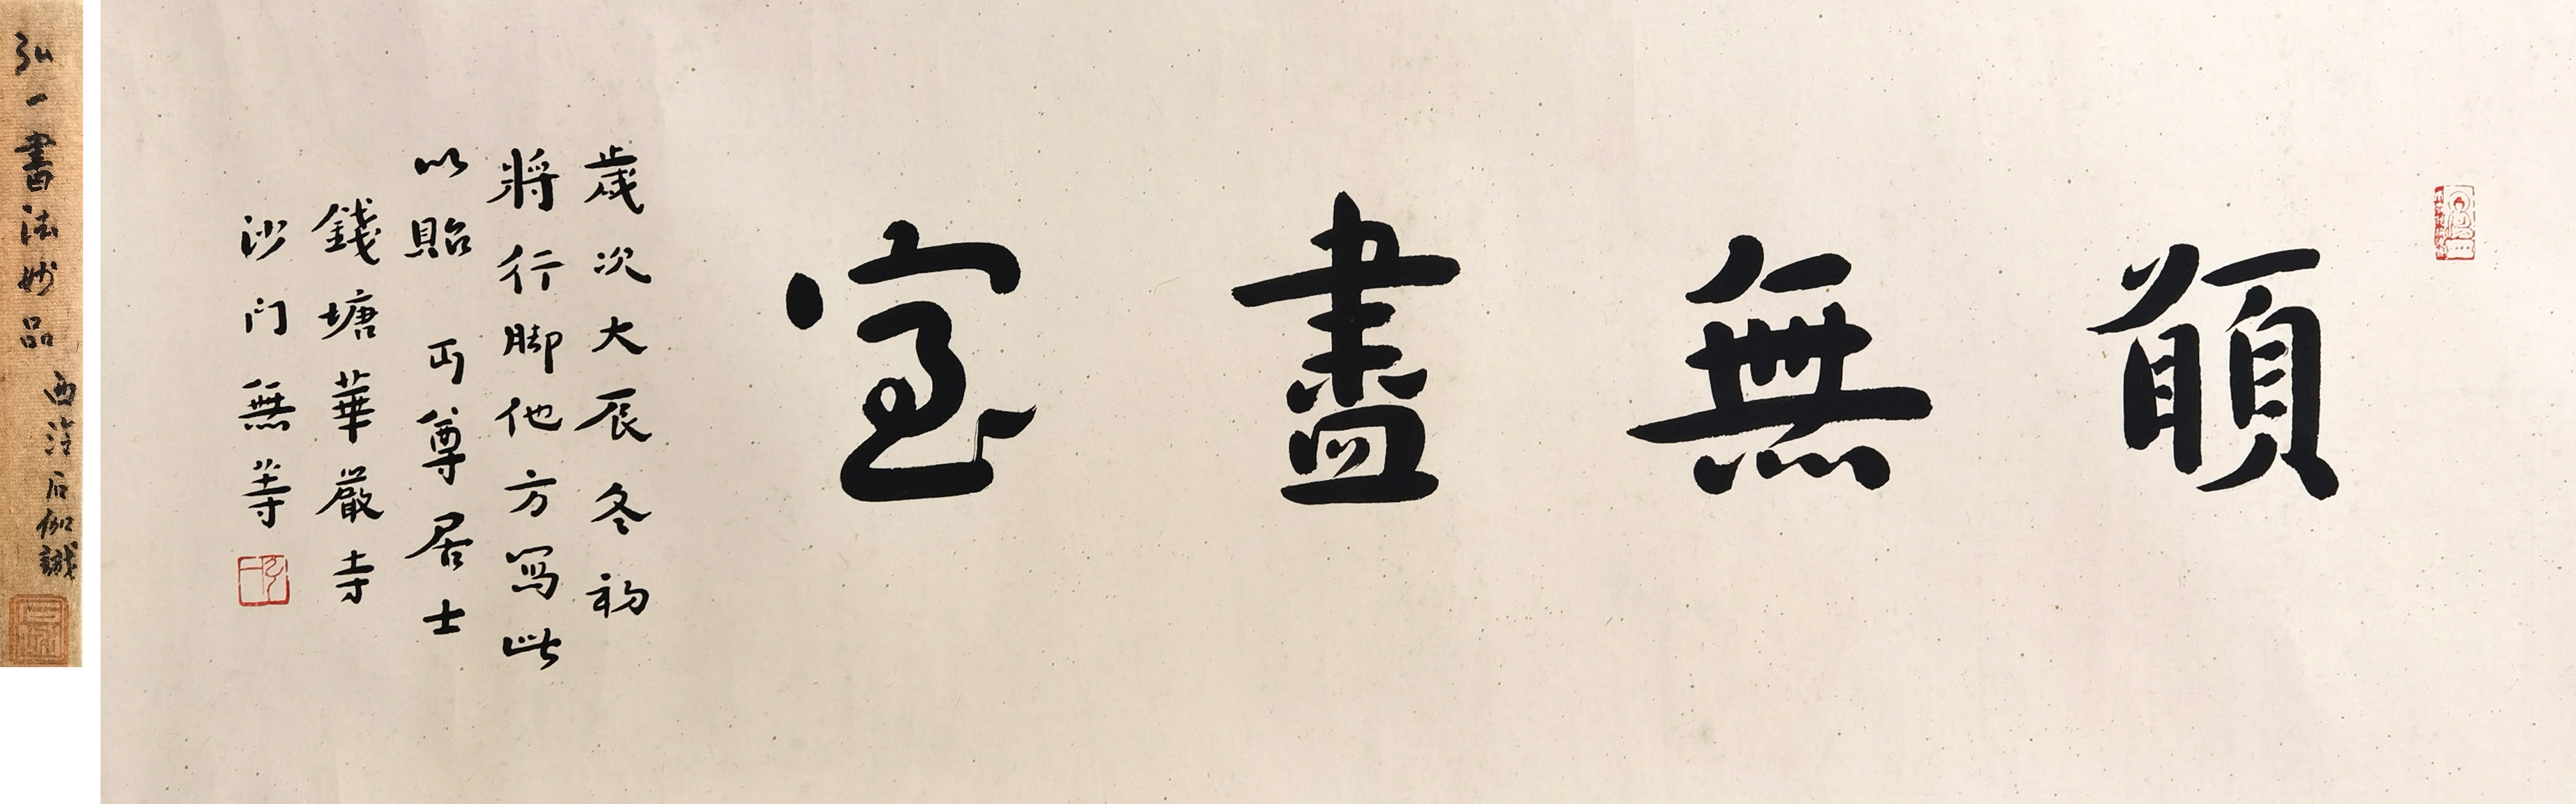 願無盡室
歲次大辰冬初
將行脚他方写此
以貽 丏尊居士
錢塘華嚴寺
沙门無等
弘一書法妙品
西泠石伽識